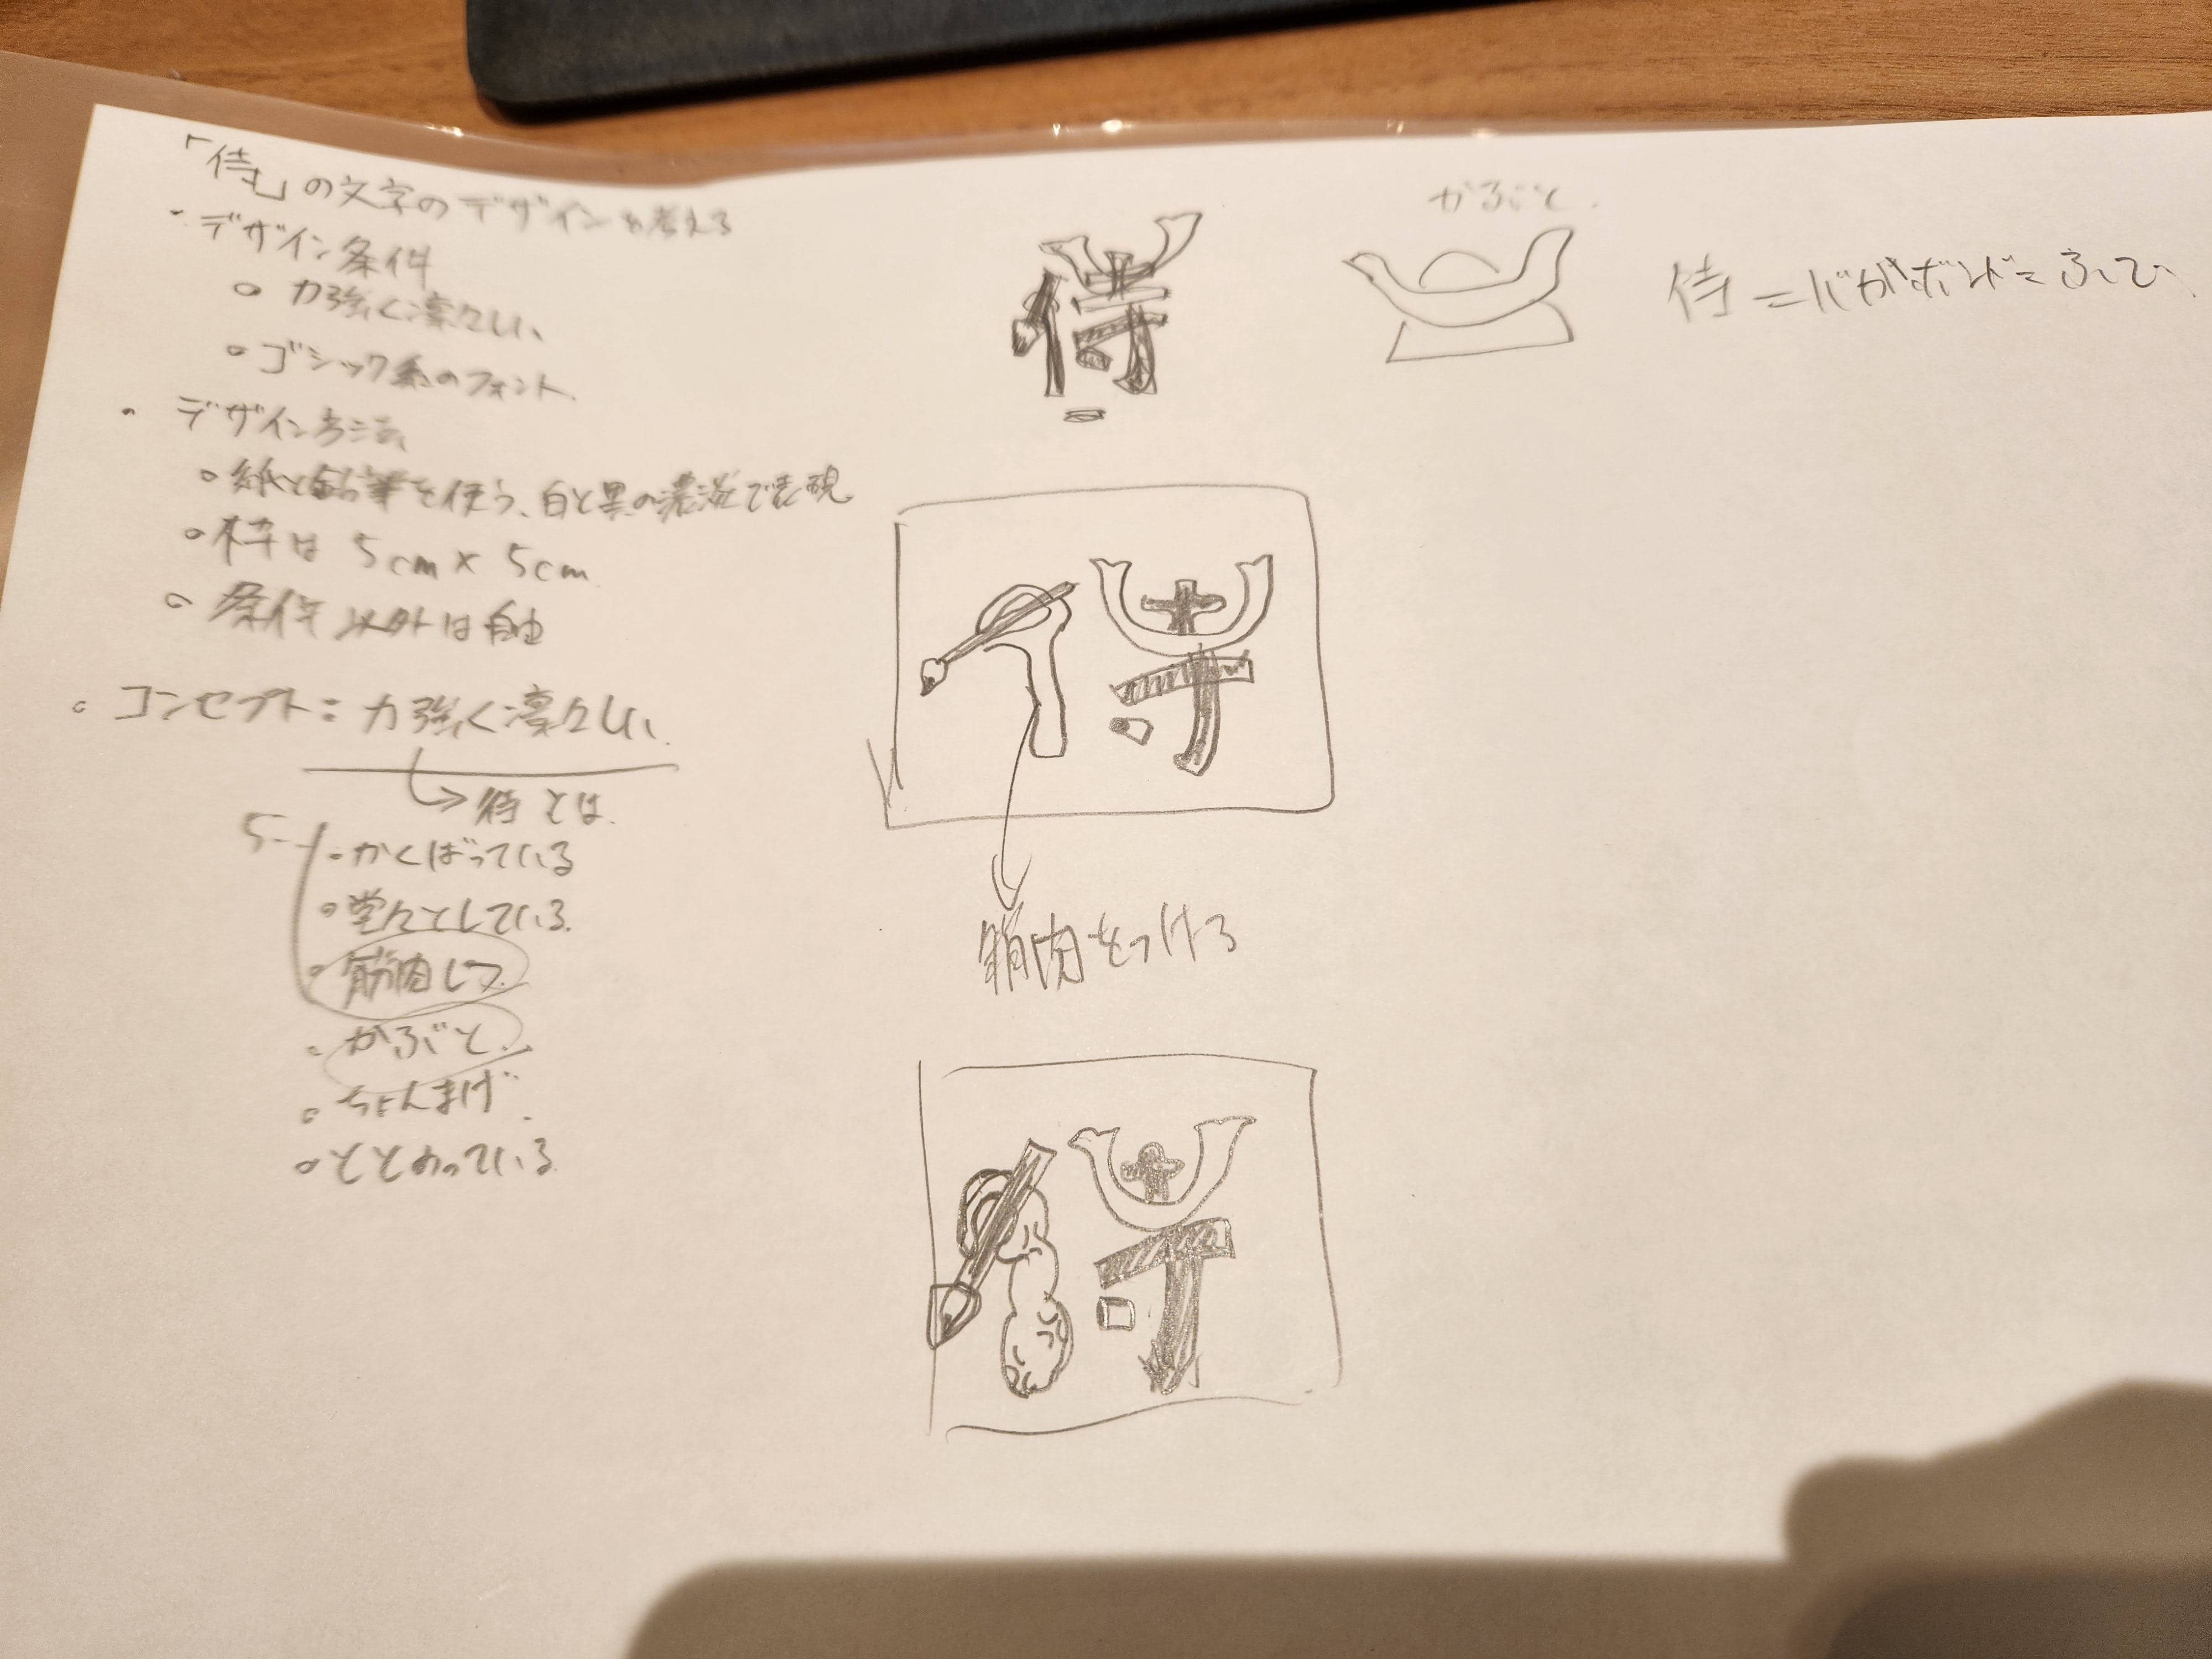 「侍」の文字のデザインを考える
・デザイン条件
○ 力強く凛々しい
○ ゴシック系のフォント
・デザイン方法
○ 紙と鉛筆を使う、白と黒の濃淡で表現
○ 枠は 5cm × 5cm
○ 条件以外は自由
○ コンセプト:力強く凛々しい
→ 侍とは
・かくばっている
○ 堂々としている
○ 筋肉しつ
・かぶと
○ ちょんまげ
○ ととのっている
侍
かぶと
侍=バガボンド=ふで
侍
筋肉をつける
侍